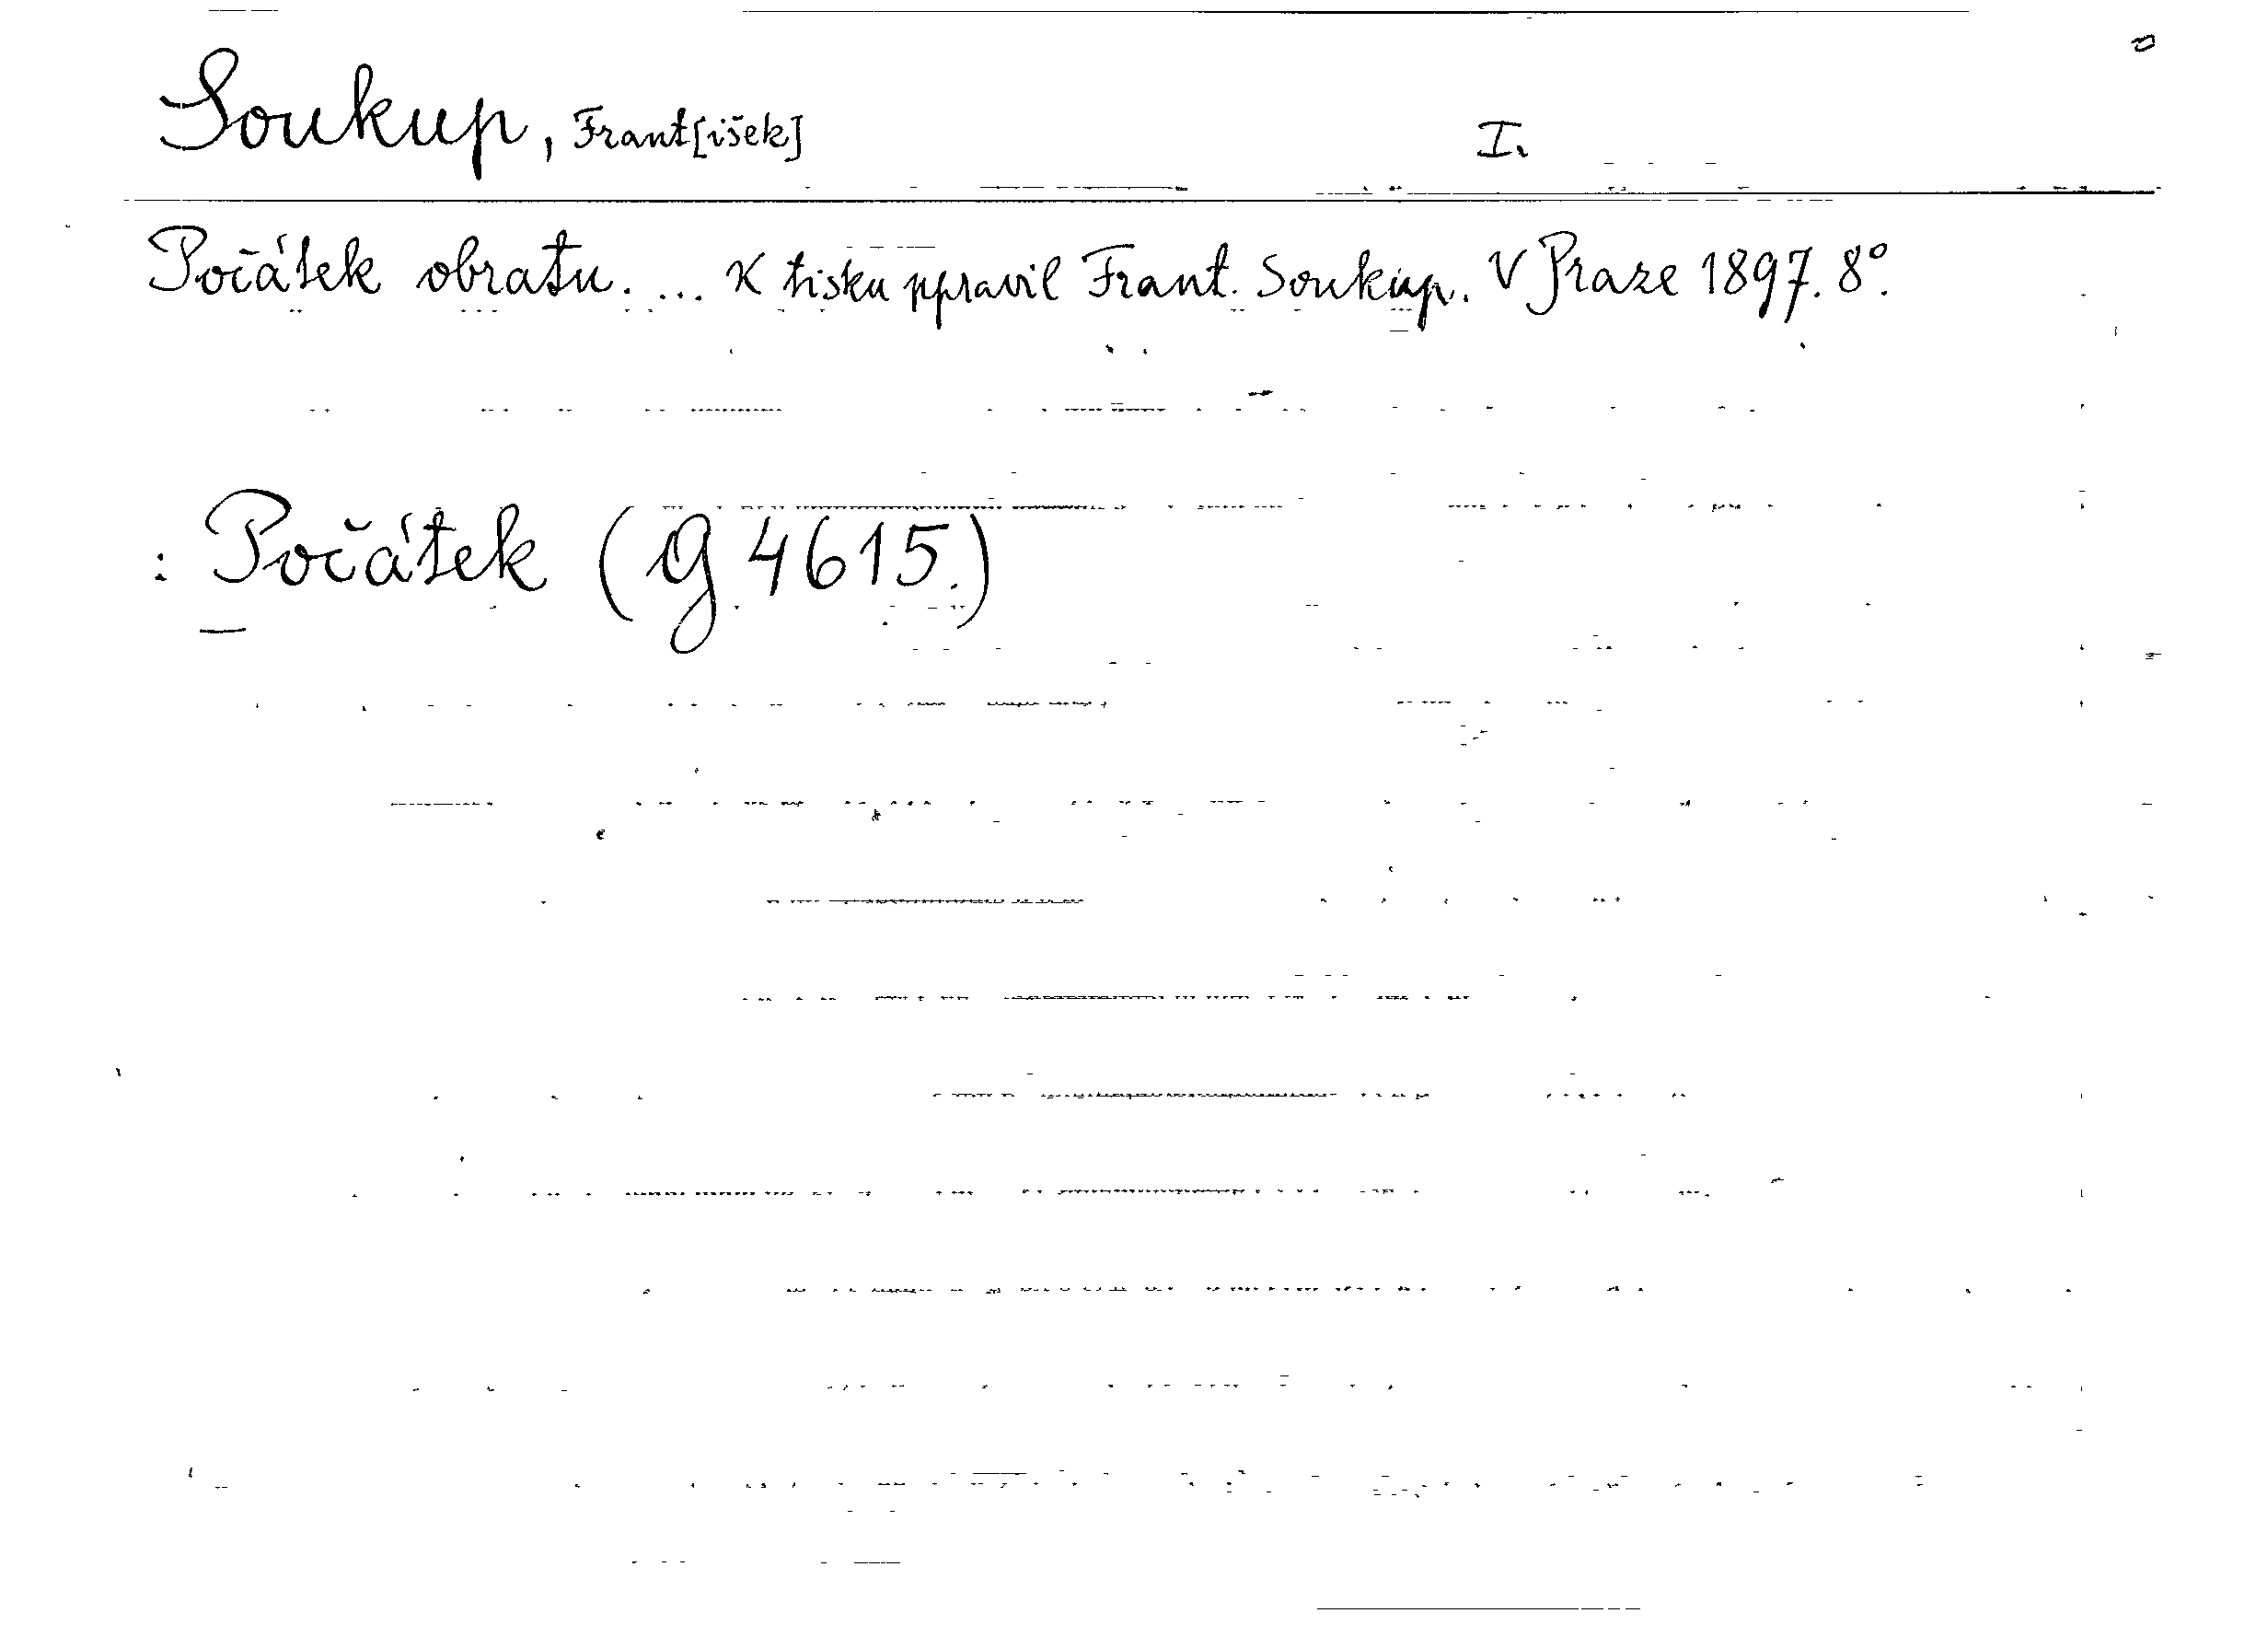 Soukup, Frant[išek] I.
Počátek obratu. ... K tisku ppravil Frant. Soukup. V Praze 1897. 8°.
: Počátek (G 4615.)